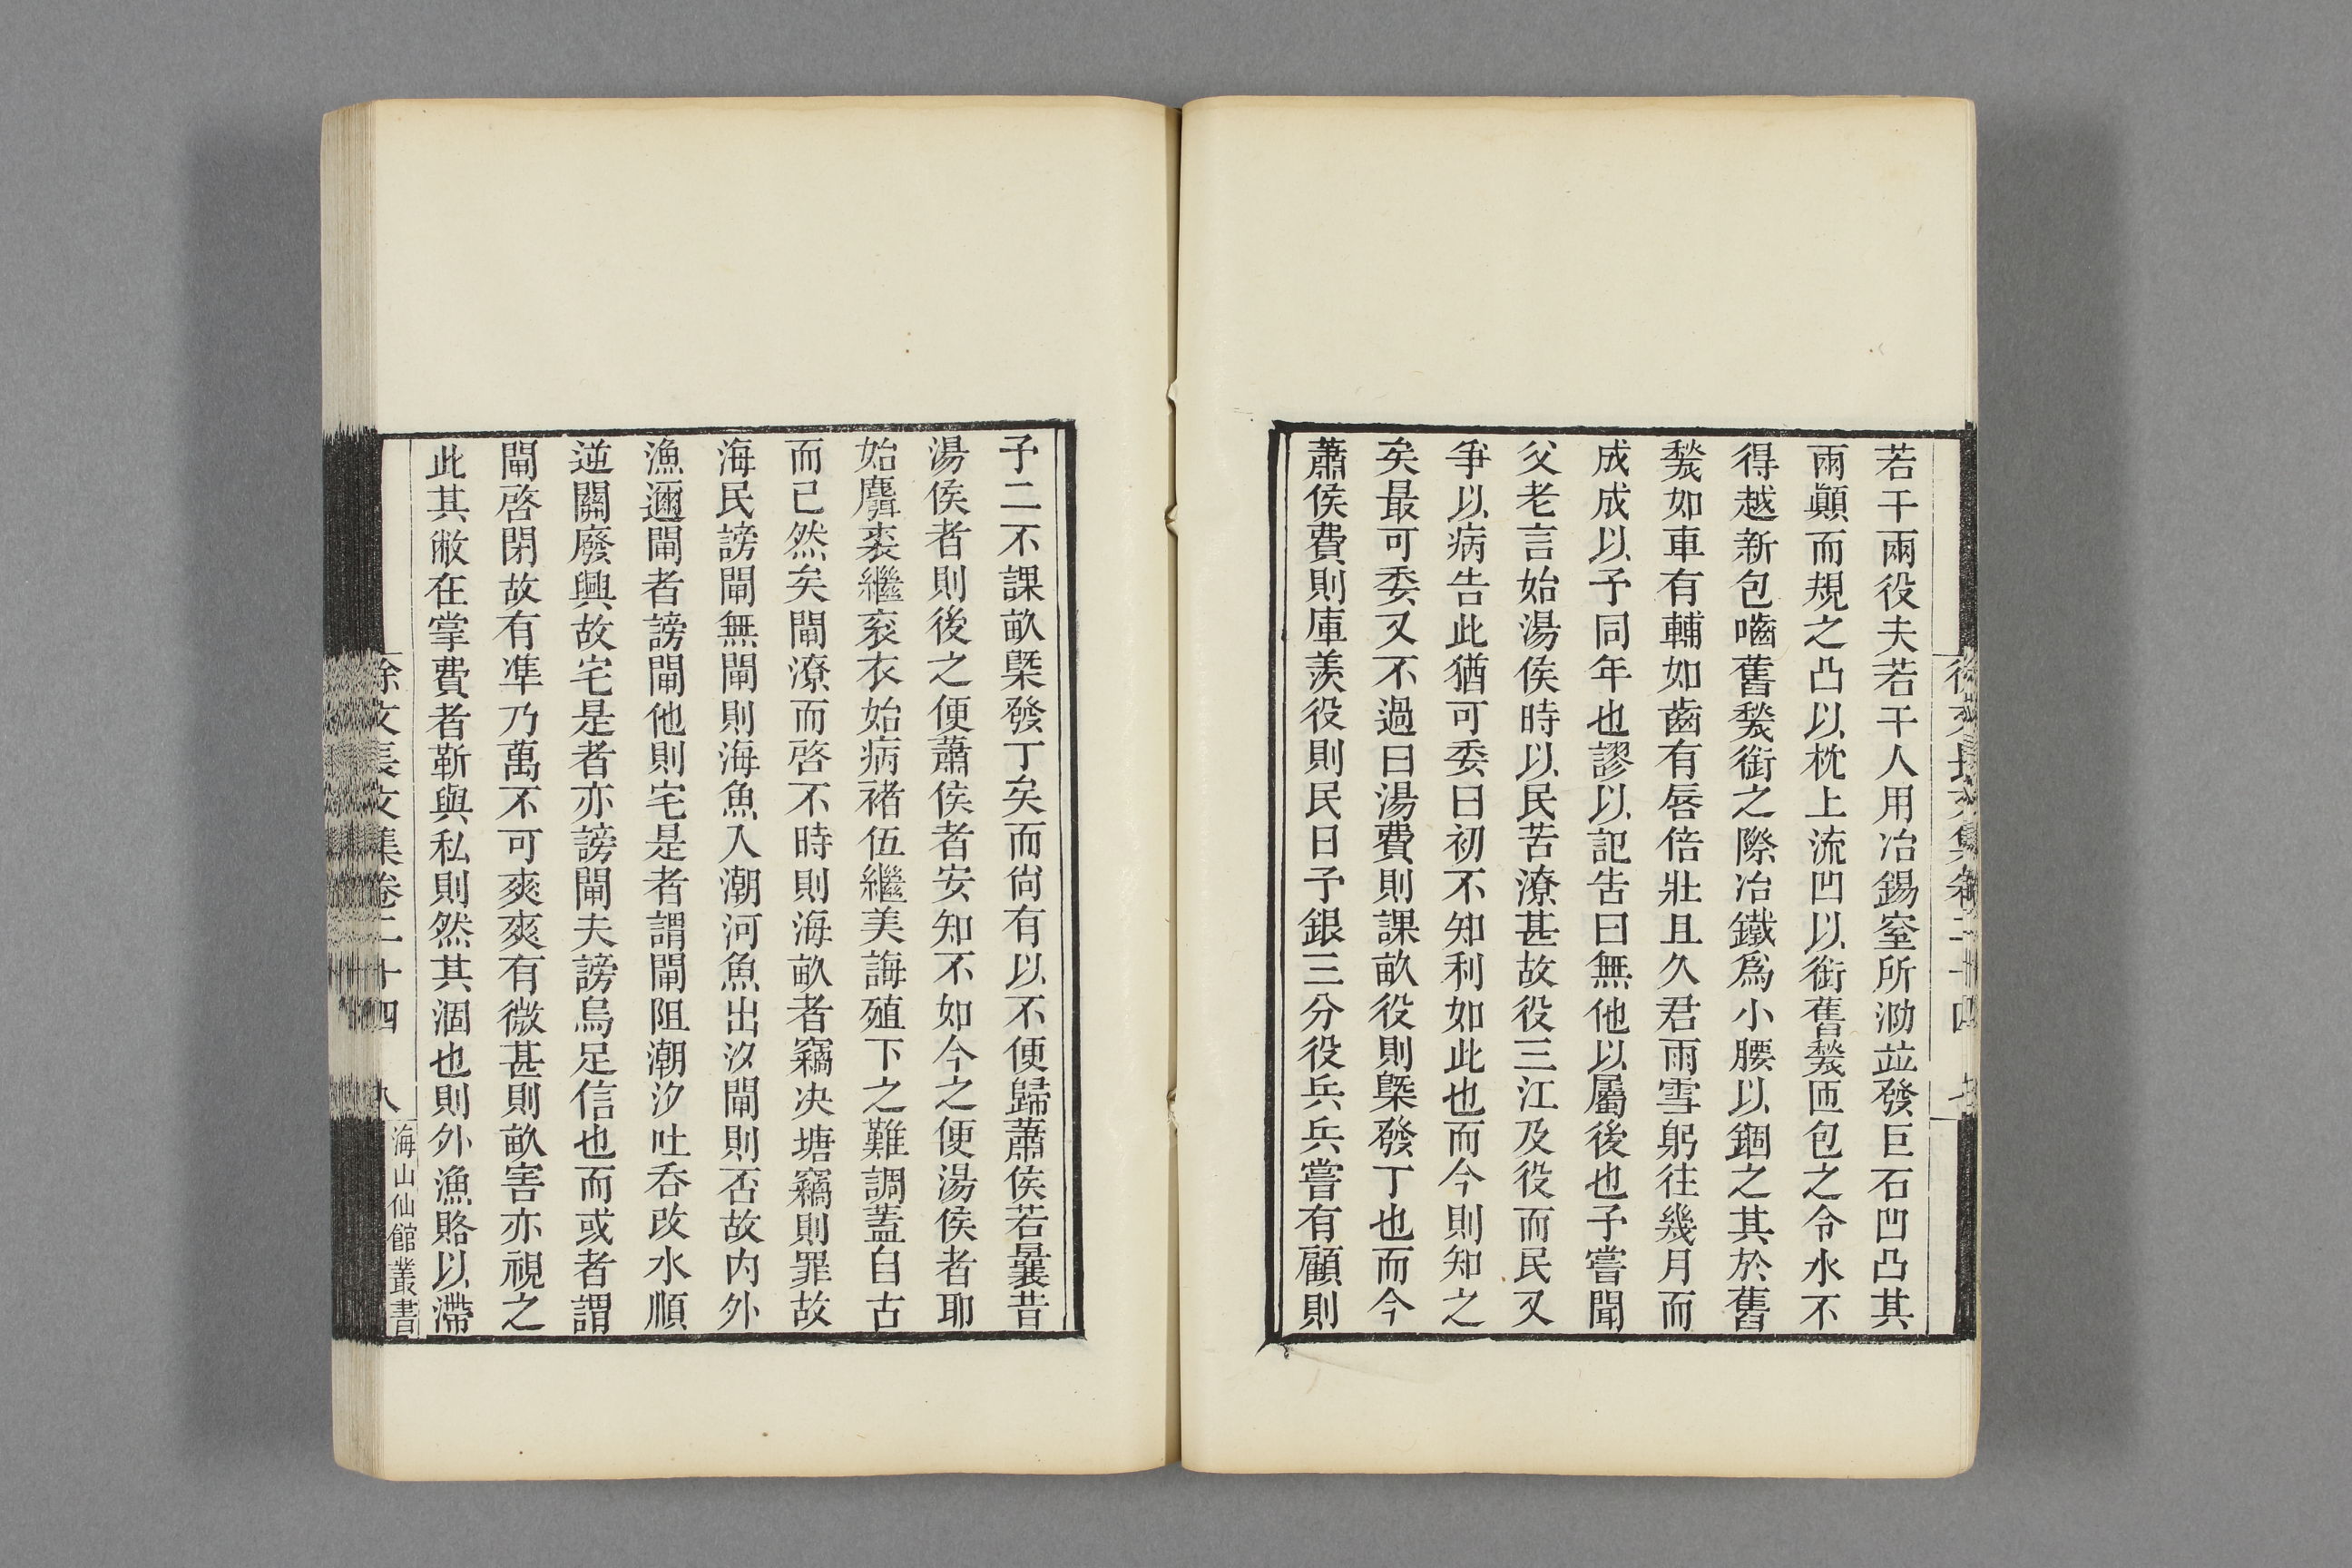 若干兩役夫若干人用冶錫窒所泐竝發巨石凹凸其
兩顚而規之凸以枕上流凹以銜舊甃匝包之令水不
得越新包嚙舊甃銜之際冶鐵爲小腰以錮之其於舊
甃如車有輔如齒有唇倍壯且久君雨雪躬往幾月而
成成以予同年也謬以記告曰無他以屬後也予嘗聞
父老言始湯侯時以民苦潦甚故役三江及役而民又
爭以病告此猶可委曰初不知利如此也而今則知之
矣最可委又不過曰湯費則課畝役則槩發丁也而今
蕭侯費則庫羨役則民日予銀三分役兵兵嘗有顧則
予二不課畝槩發丁矣而尙有以不便歸蕭侯若曩昔
湯侯者則後之便蕭侯者安知不如今之便湯侯者耶
始麛裘繼衮衣始病褚伍繼美誨殖下之難調蓋自古
而已然矣閘潦而啓不時則海畝者竊决塘竊則罪故
海民謗閘無閘則海魚入潮河魚出汐閘則否故内外
漁邇閘者謗閘他則宅是者謂閘阻潮汐吐呑改水順
逆關廢興故宅是者亦謗閘夫謗烏足信也而或者謂
閘啓閉故有凖乃萬不可爽爽有微甚則畝害亦視之
此其敝在掌費者靳與私則然其涸也則外漁賂以滯
徐文長文集卷二十四 八
海山仙館叢書